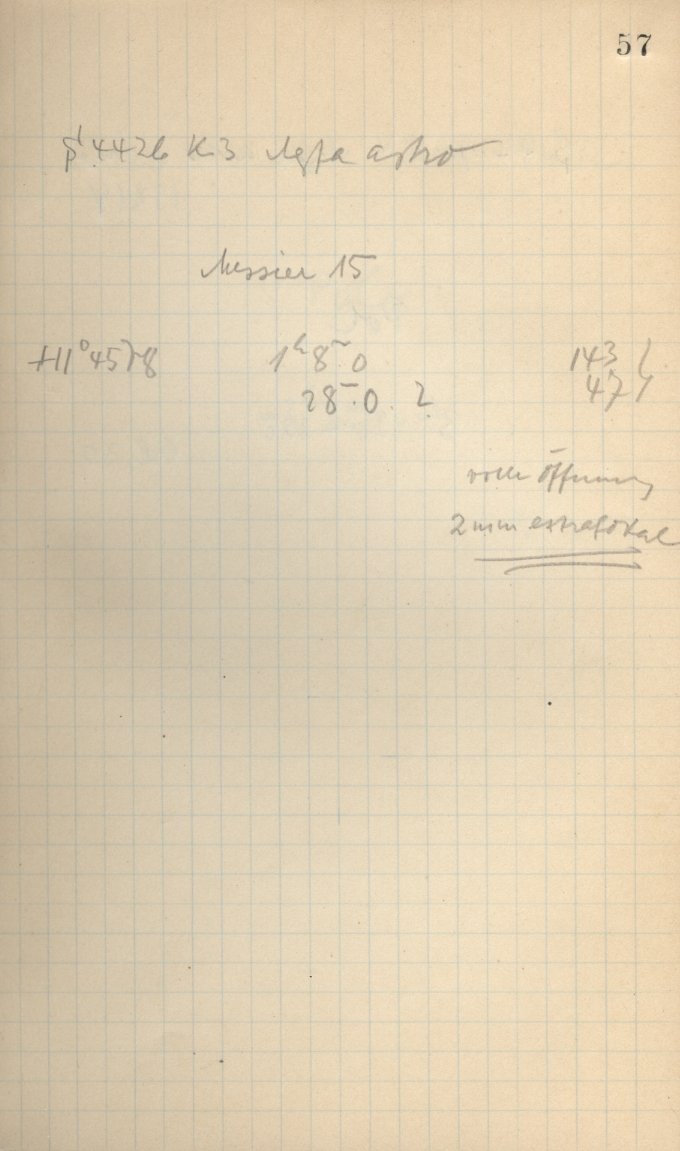 57
4426 K3 Agfa astro
Messier 15
+11° 4578 1ʰ 8ᵐ.0 143
28ᵐ.0 ? 47
volle Öffnung
2mm extrafokal